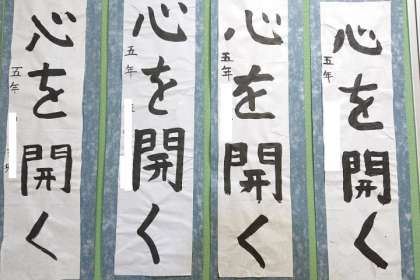 心を開く
五年
心を開く
五年
心を開く
五年
心を開く
五年